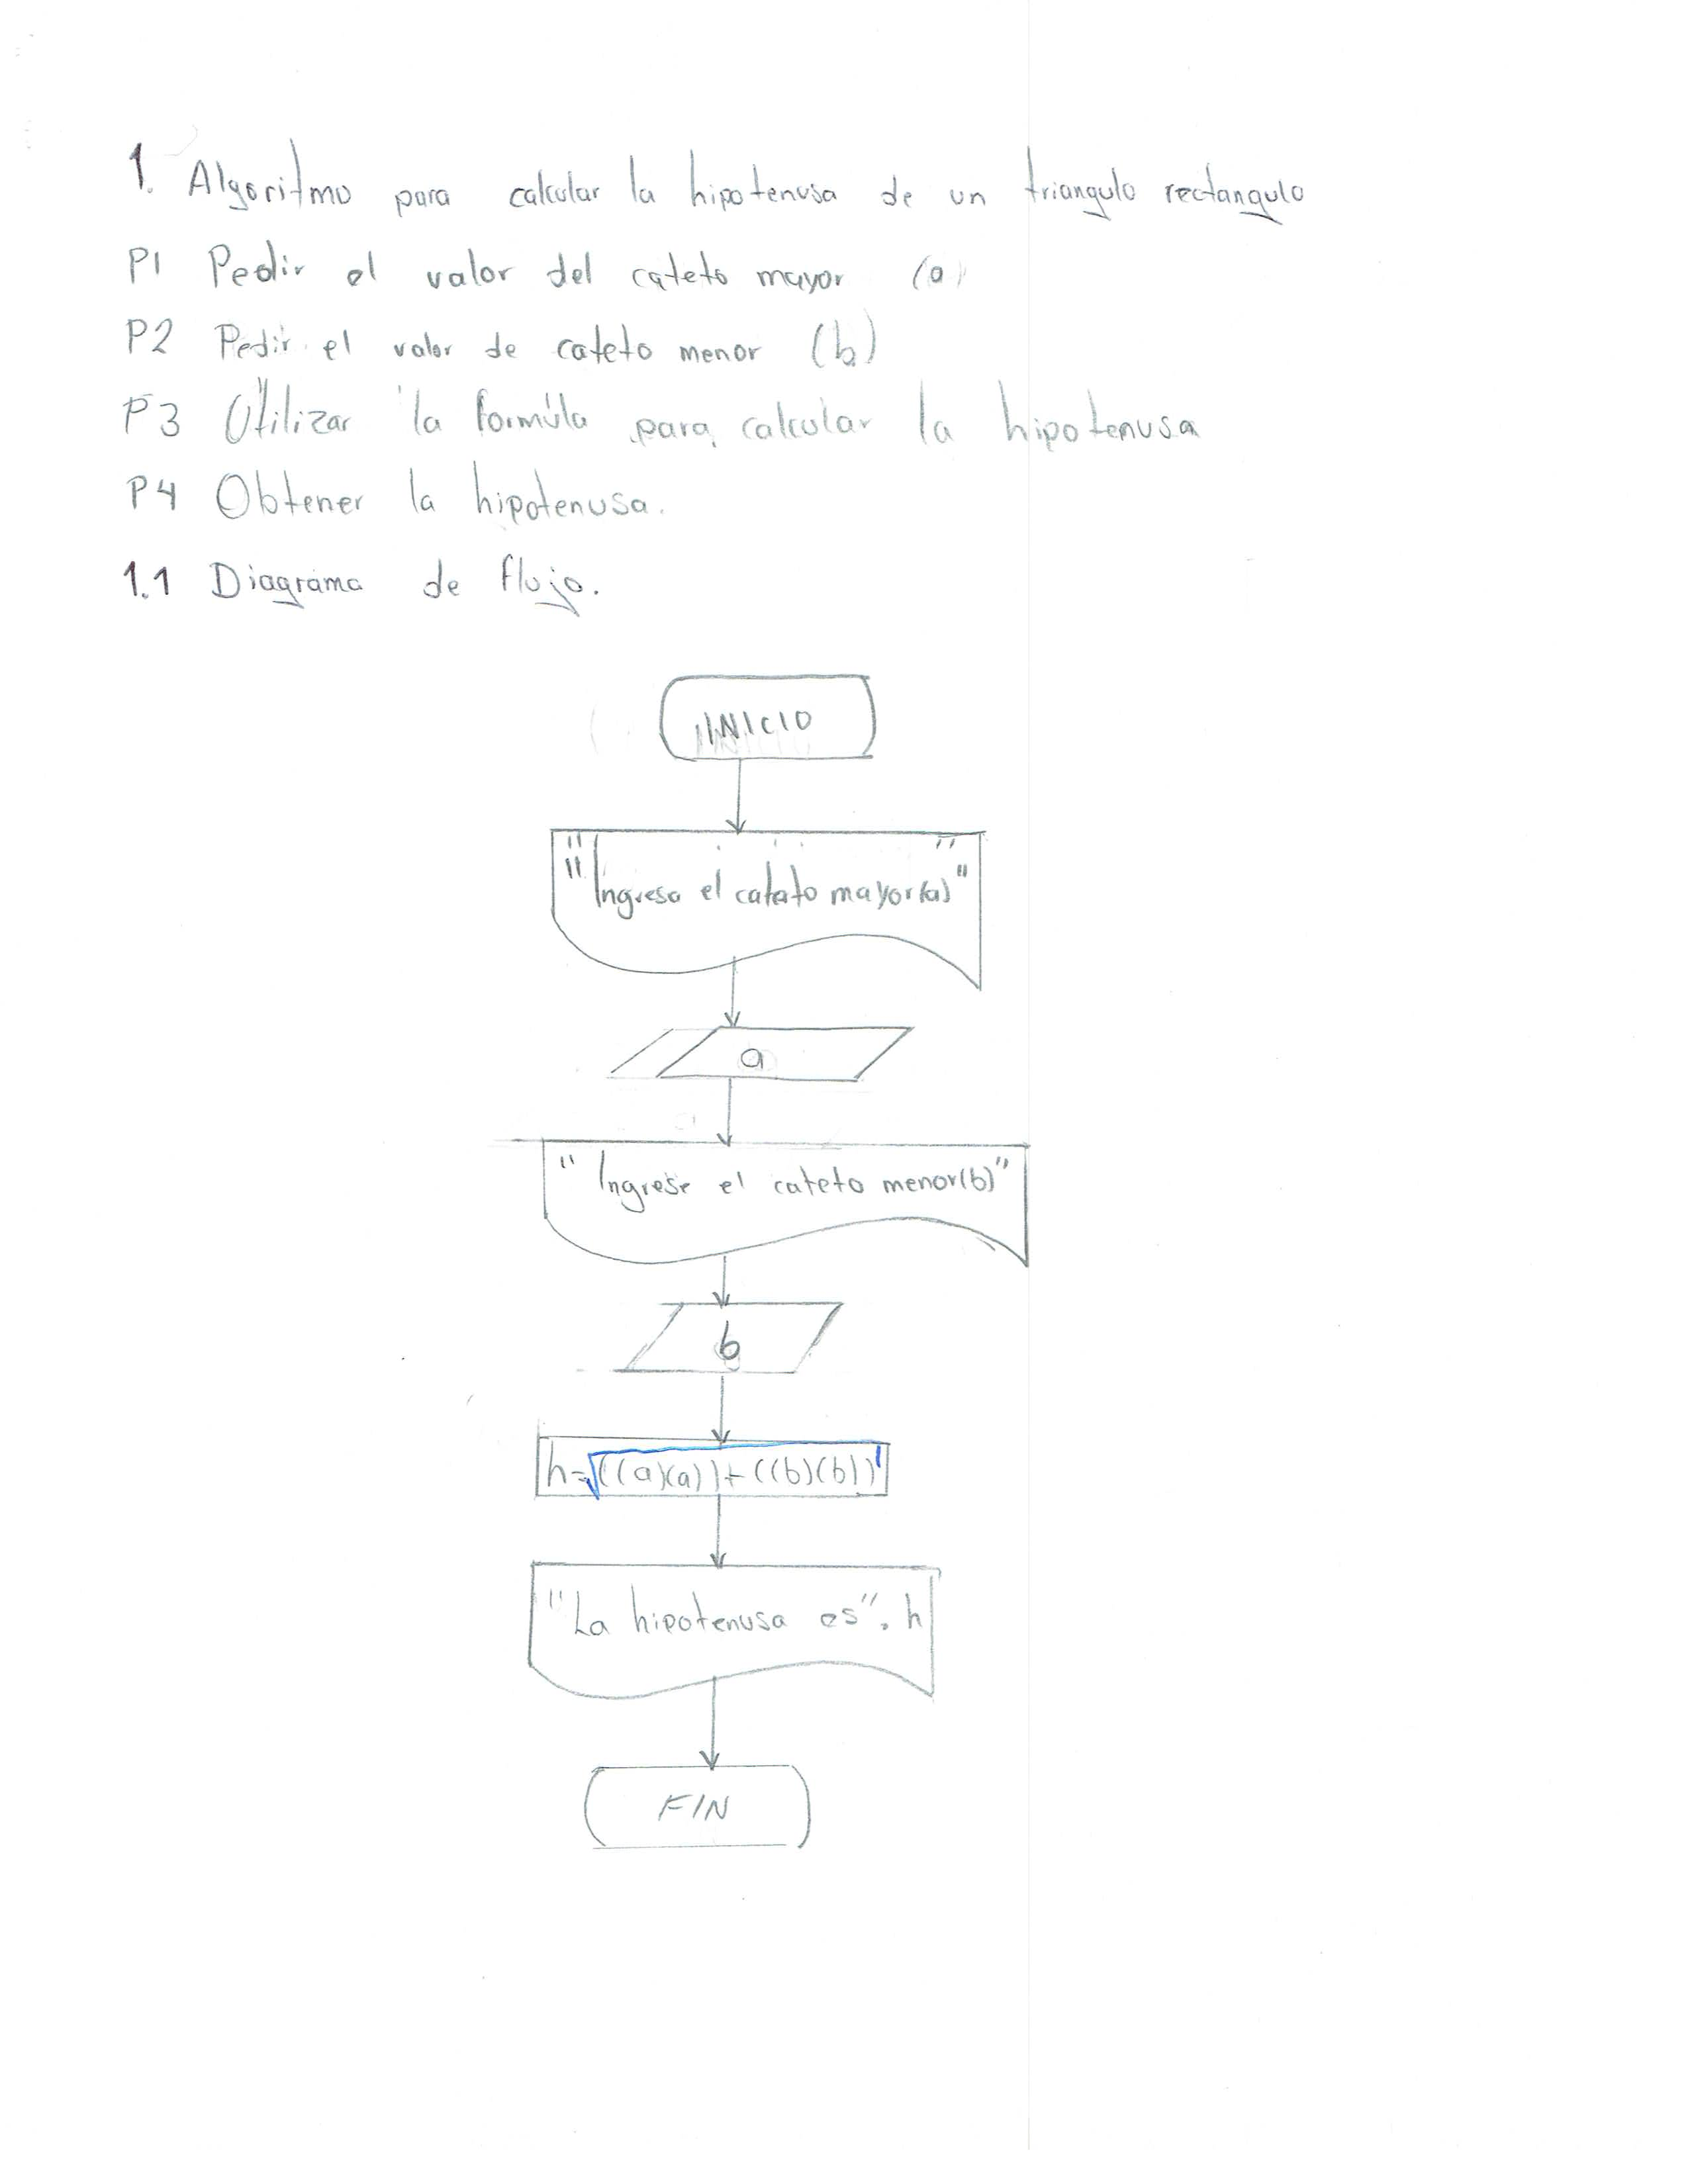 1. Algoritmo para calcular la hipotenusa de un triangulo rectangulo
P1 Pedir el valor del cateto mayor (a)
P2 Pedir el valor de cateto menor (b)
P3 Utilizar la formúla para calcular la hipotenusa
P4 Obtener la hipotenusa.
1.1 Diagrama de flujo.
INICIO
"Ingrese el cateto mayor(a)"
a
"Ingrese el cateto menor(b)"
b
h=√((a)(a))+((b)(b))
"La hipotenusa es", h
FIN